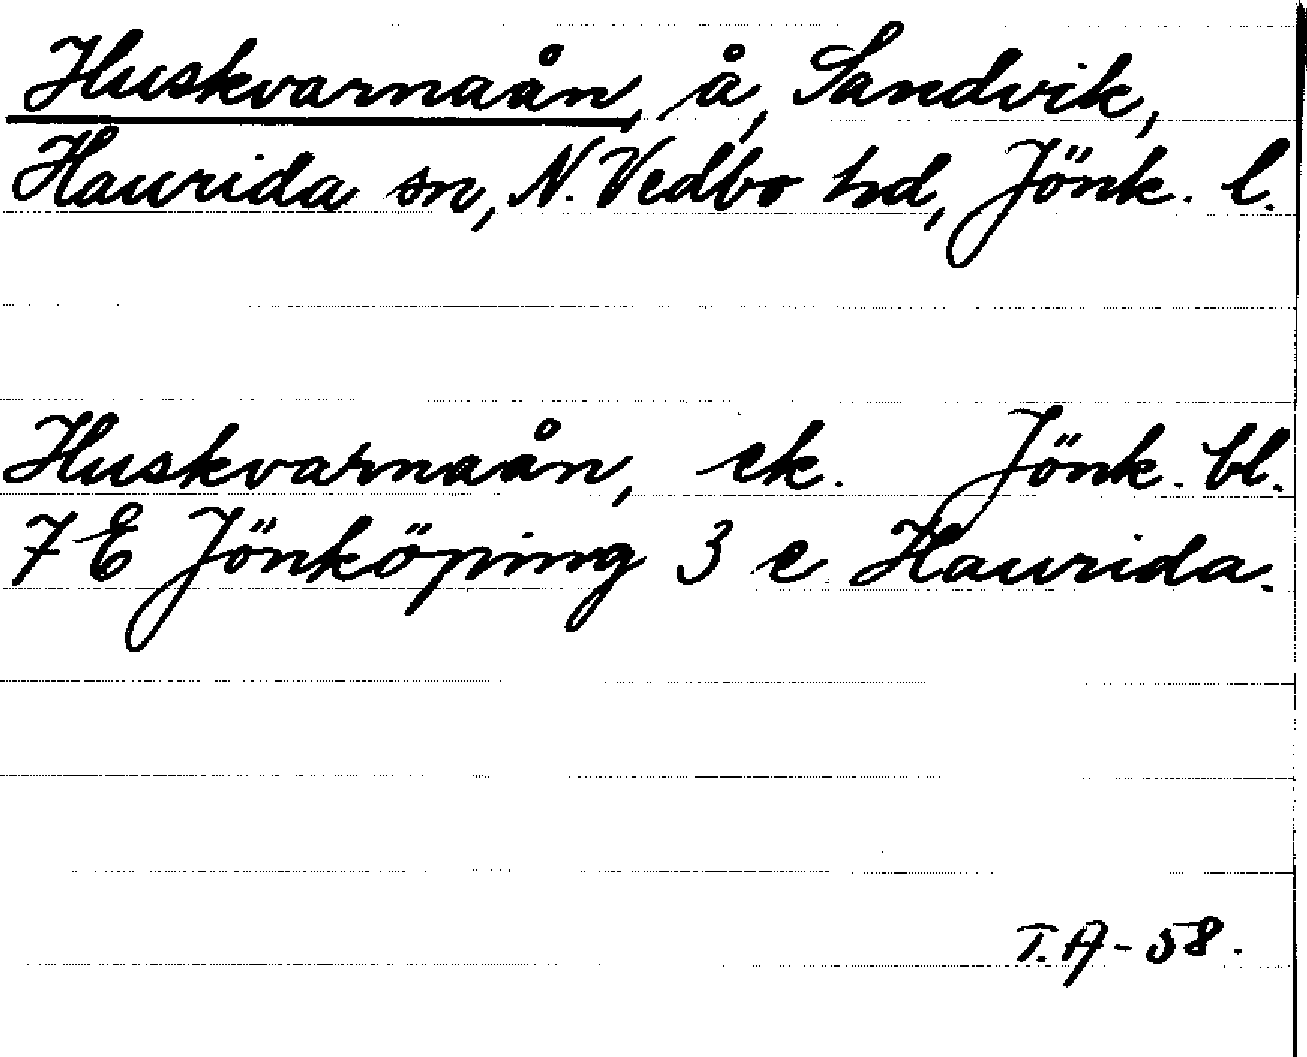 Huskvarnaån, å, Sandvik,
Haurida sn, N. Vedbo hd, Jönk. l.
Huskvarnaån, ek. Jönk. bl.
7 E Jönköping 3 e Haurida.
T.A-58.